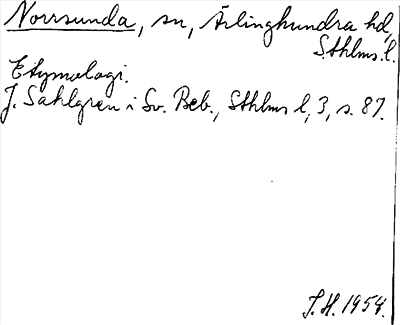 Norrsunda, sn, Ärlinghundra hd,
Sthlms. l.
Etymologi.
J. Sahlgren i Sv. Beb., Sthlms l, 3, s. 87.
J.H. 1954.